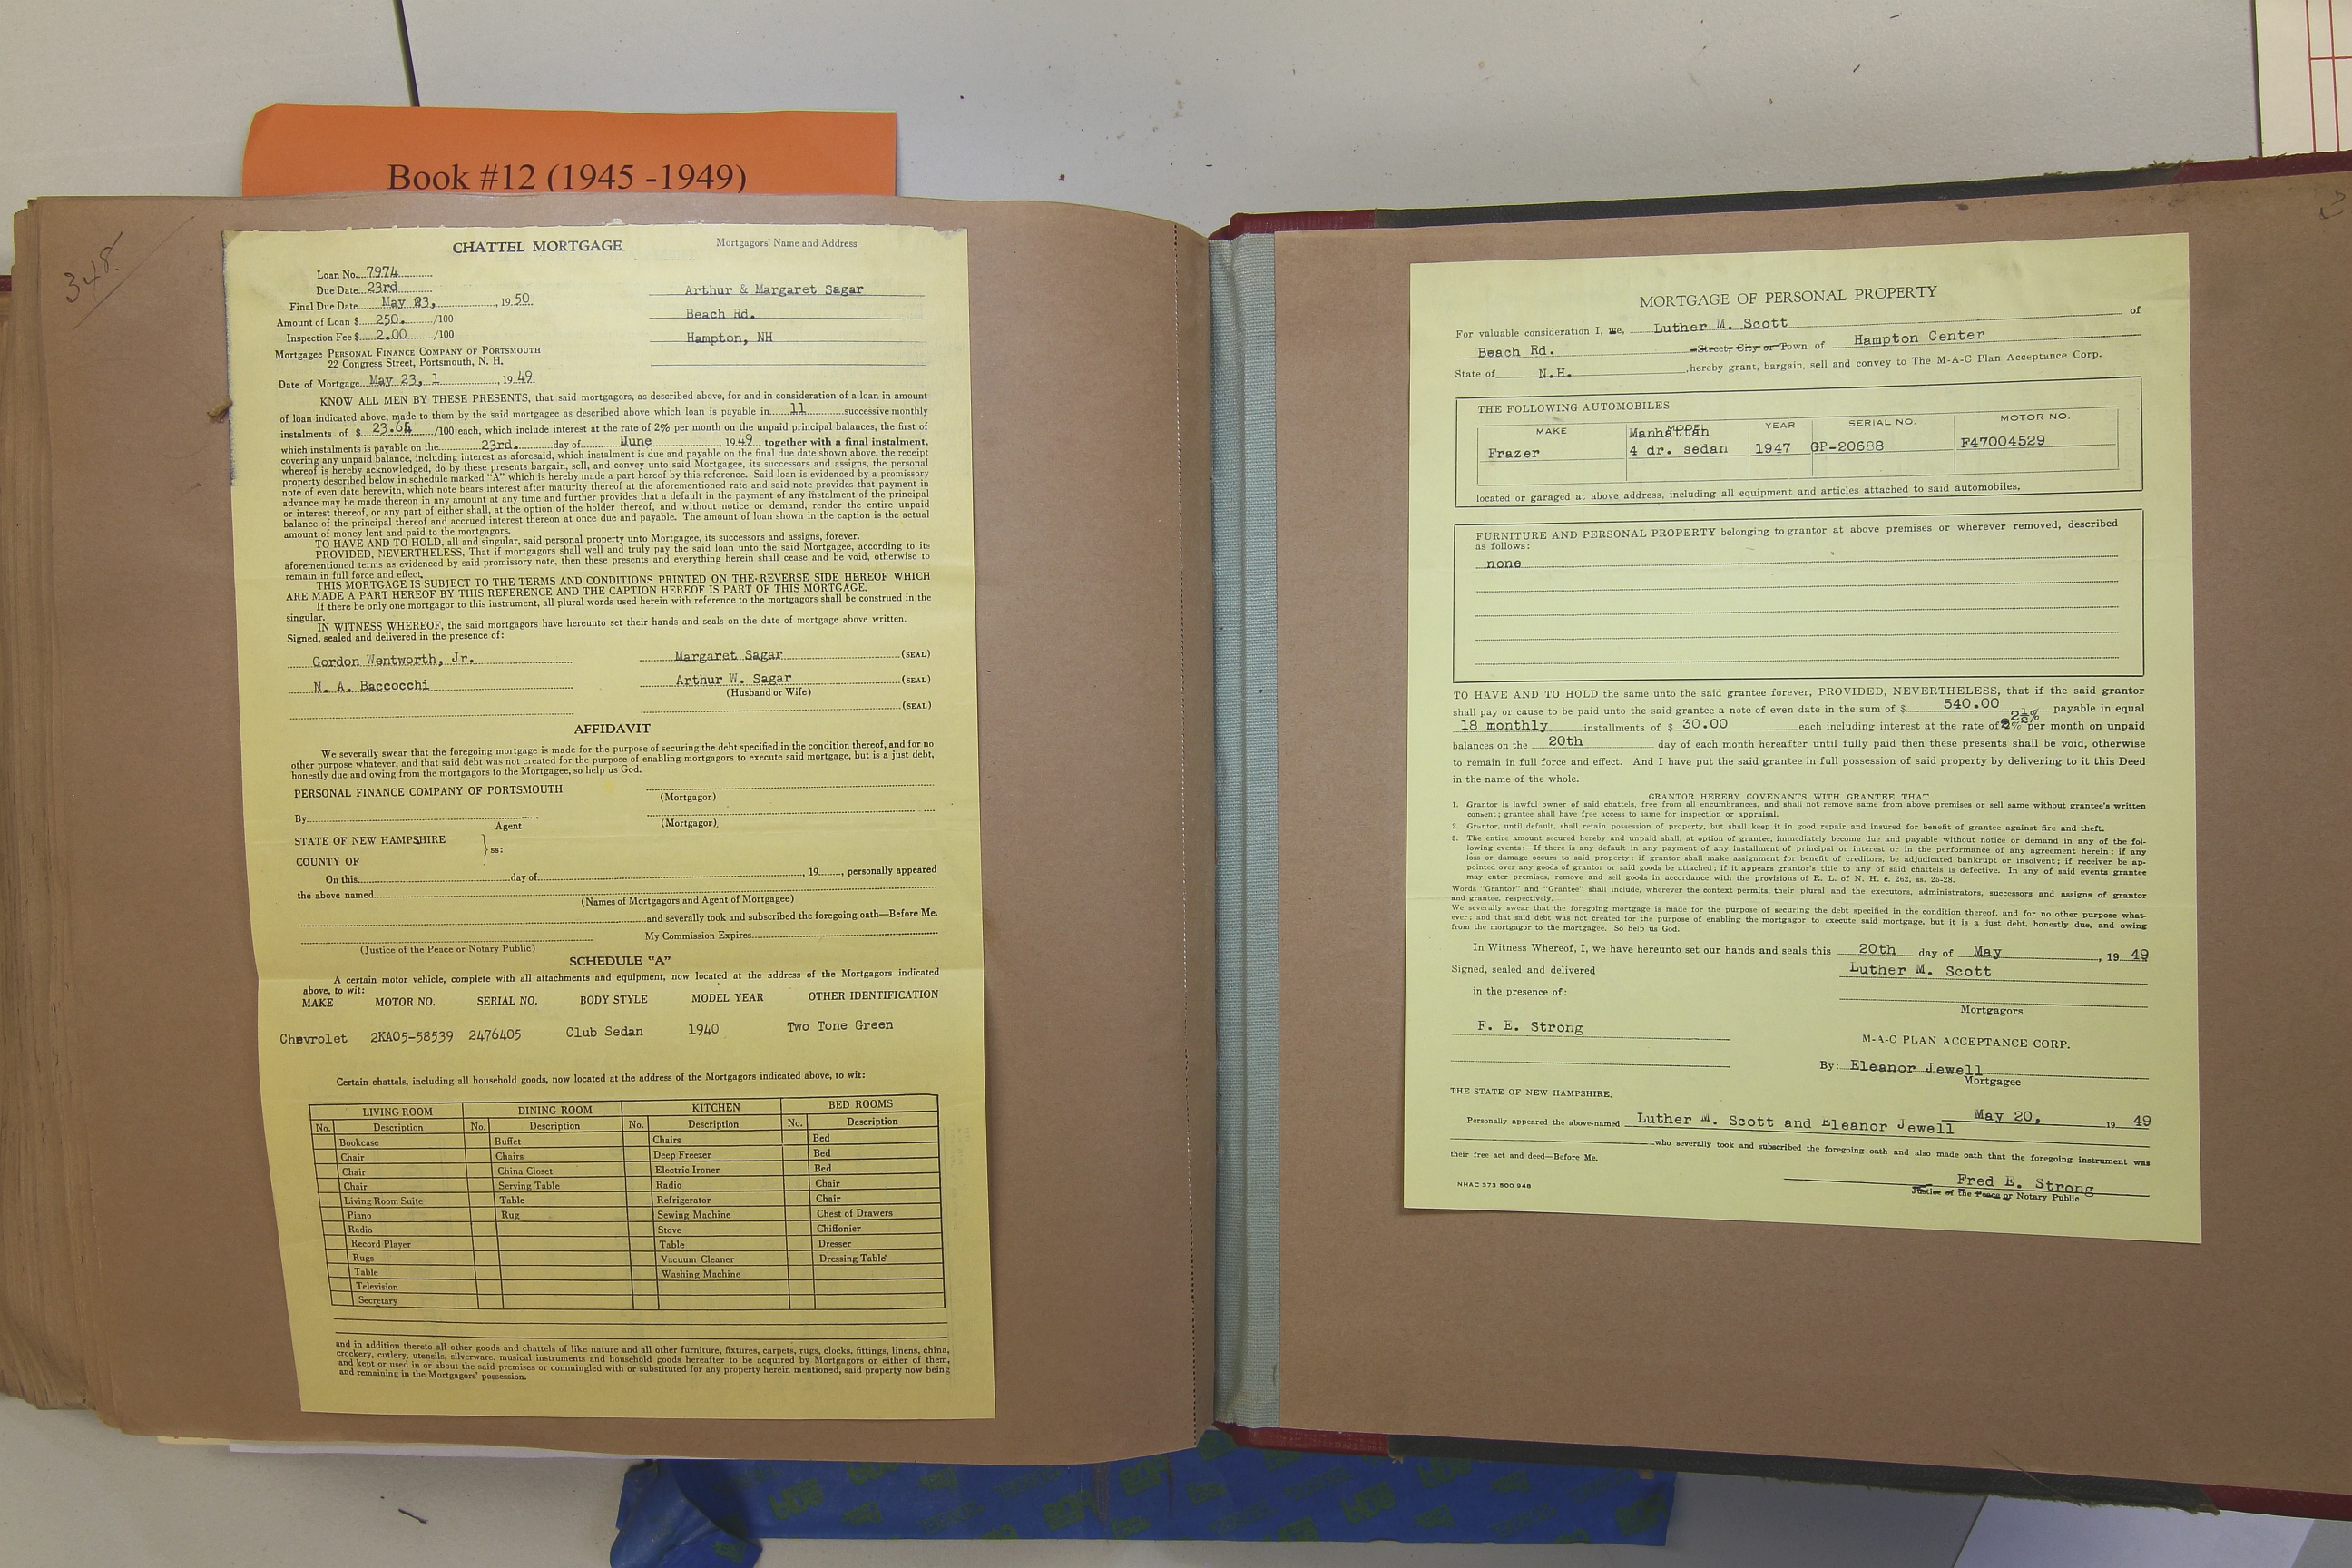 Book #12 (1945 -1949)
348.
CHATTEL MORTGAGE
Mortgagors' Name and Address
Loan No. 7974
Due Date 23rd
Final Due Date May 23, , 19 50
Amount of Loan $ 250. /100
Inspection Fee $ 2.00 /100
Mortgagee PERSONAL FINANCE COMPANY OF PORTSMOUTH
22 Congress Street, Portsmouth, N. H.
Date of Mortgage May 23, 1 , 19 49
Arthur & Margaret Sagar
Beach Rd.
Hampton, NH
KNOW ALL MEN BY THESE PRESENTS, that said mortgagors, as described above, for and in consideration of a loan in amount
of loan indicated above, made to them by the said mortgagee as described above which loan is payable in 11 successive monthly
instalments of $ 23.64 /100 each, which include interest at the rate of 2% per month on the unpaid principal balances, the first of
which instalments is payable on the 23rd. day of June , 19 49 , together with a final instalment,
covering any unpaid balance, including interest as aforesaid, which instalment is due and payable on the final due date shown above, the receipt
whereof is hereby acknowledged, do by these presents bargain, sell, and convey unto said Mortgagee, its successors and assigns, the personal
property described below in schedule marked "A" which is hereby made a part hereof by this reference. Said loan is evidenced by a promissory
note of even date herewith, which note bears interest after maturity thereof at the aforementioned rate and said note provides that payment in
advance may be made thereon in any amount at any time and further provides that a default in the payment of any instalment of the principal
or interest thereof, or any part of either shall, at the option of the holder thereof, and without notice or demand, render the entire unpaid
balance of the principal thereof and accrued interest thereon at once due and payable. The amount of loan shown in the caption is the actual
amount of money lent and paid to the mortgagors.
TO HAVE AND TO HOLD, all and singular, said personal property unto Mortgagee, its successors and assigns, forever.
PROVIDED, NEVERTHELESS, That if mortgagors shall well and truly pay the said loan unto the said Mortgagee, according to its
aforementioned terms as evidenced by said promissory note, then these presents and everything herein shall cease and be void, otherwise to
remain in full force and effect.
THIS MORTGAGE IS SUBJECT TO THE TERMS AND CONDITIONS PRINTED ON THE REVERSE SIDE HEREOF WHICH
ARE MADE A PART HEREOF BY THIS REFERENCE AND THE CAPTION HEREOF IS PART OF THIS MORTGAGE.
If there be only one mortgagor to this instrument, all plural words used herein with reference to the mortgagors shall be construed in the
singular.
IN WITNESS WHEREOF, the said mortgagors have hereunto set their hands and seals on the date of mortgage above written.
Signed, sealed and delivered in the presence of:
Gordon Wentworth, Jr. Margaret Sagar (SEAL)
N. A. Baccocchi Arthur W. Sagar (SEAL)
(Husband or Wife)
(SEAL)
AFFIDAVIT
We severally swear that the foregoing mortgage is made for the purpose of securing the debt specified in the condition thereof, and for no
other purpose whatever, and that said debt was not created for the purpose of enabling mortgagors to execute said mortgage, but is a just debt,
honestly due and owing from the mortgagors to the Mortgagee, so help us God.
PERSONAL FINANCE COMPANY OF PORTSMOUTH
(Mortgagor)
By
Agent
(Mortgagor)
STATE OF NEW HAMPSHIRE
ss:
COUNTY OF
On this day of , 19 , personally appeared
the above named
(Names of Mortgagors and Agent of Mortgagee)
and severally took and subscribed the foregoing oath—Before Me.
My Commission Expires
(Justice of the Peace or Notary Public)
SCHEDULE "A"
A certain motor vehicle, complete with all attachments and equipment, now located at the address of the Mortgagors indicated
above, to wit:
MAKE MOTOR NO. SERIAL NO. BODY STYLE MODEL YEAR OTHER IDENTIFICATION
Chevrolet 2KA05-58539 2476405 Club Sedan 1940 Two Tone Green
Certain chattels, including all household goods, now located at the address of the Mortgagors indicated above, to wit:
LIVING ROOM DINING ROOM KITCHEN BED ROOMS
No. Description No. Description No. Description No. Description
Bookcase Buffet Chairs Bed
Chair Chairs Deep Freezer Bed
Chair China Closet Electric Ironer Bed
Chair Serving Table Radio Chair
Living Room Suite Table Refrigerator Chair
Piano Rug Sewing Machine Chest of Drawers
Radio Stove Chiffonier
Record Player Table Dresser
Rugs Vacuum Cleaner Dressing Table
Table Washing Machine
Television
Secretary
and in addition thereto all other goods and chattels of like nature and all other furniture, fixtures, carpets, rugs, clocks, fittings, linens, china,
crockery, cutlery, utensils, silverware, musical instruments and household goods hereafter to be acquired by Mortgagors or either of them,
and kept or used in or about the said premises or commingled with or substituted for any property herein mentioned, said property now being
and remaining in the Mortgagors' possession.
MORTGAGE OF PERSONAL PROPERTY
For valuable consideration I, we, Luther M. Scott of
Beach Rd. Street, City or Town of Hampton Center
State of N.H. , hereby grant, bargain, sell and convey to The M-A-C Plan Acceptance Corp.
THE FOLLOWING AUTOMOBILES
MAKE MODEL YEAR SERIAL NO. MOTOR NO.
Manhattan
Frazer 4 dr. sedan 1947 GP-20688 F47004529
located or garaged at above address, including all equipment and articles attached to said automobiles.
FURNITURE AND PERSONAL PROPERTY belonging to grantor at above premises or wherever removed, described
as follows:
none
TO HAVE AND TO HOLD the same unto the said grantee forever, PROVIDED, NEVERTHELESS, that if the said grantor
shall pay or cause to be paid unto the said grantee a note of even date in the sum of $ 540.00 payable in equal
18 monthly installments of $ 30.00 each including interest at the rate of 2½% per month on unpaid
balances on the 20th day of each month hereafter until fully paid then these presents shall be void, otherwise
to remain in full force and effect. And I have put the said grantee in full possession of said property by delivering to it this Deed
in the name of the whole.
GRANTOR HEREBY COVENANTS WITH GRANTEE THAT
1. Grantor is lawful owner of said chattels, free from all encumbrances, and shall not remove same from above premises or sell same without grantee's written
consent; grantee shall have free access to same for inspection or appraisal.
2. Grantor, until default, shall retain possession of property, but shall keep it in good repair and insured for benefit of grantee against fire and theft.
3. The entire amount secured hereby and unpaid shall, at option of grantee, immediately become due and payable without notice or demand in any of the fol-
lowing events:—If there is any default in any payment of any installment of principal or interest or in the performance of any agreement herein; if any
loss or damage occurs to said property; if grantor shall make assignment for benefit of creditors, be adjudicated bankrupt or insolvent; if receiver be ap-
pointed over any goods of grantor or said goods be attached; if it appears grantor's title to any of said chattels is defective. In any of said events grantee
may enter premises, remove and sell goods in accordance with the provisions of R. L. of N. H. c. 262, ss. 25-28.
Words "Grantor" and "Grantee" shall include, wherever the context permits, their plural and the executors, administrators, successors and assigns of grantor
and grantee, respectively.
We severally swear that the foregoing mortgage is made for the purpose of securing the debt specified in the condition thereof, and for no other purpose what-
ever; and that said debt was not created for the purpose of enabling the mortgagor to execute said mortgage, but it is a just debt, honestly due, and owing
from the mortgagor to the mortgagee. So help us God.
In Witness Whereof, I, we have hereunto set our hands and seals this 20th day of May , 19 49
Signed, sealed and delivered Luther M. Scott
in the presence of:
Mortgagors
F. E. Strong
M-A-C PLAN ACCEPTANCE CORP.
By: Eleanor Jewell
Mortgagee
THE STATE OF NEW HAMPSHIRE.
May 20, 19 49
Personally appeared the above-named Luther M. Scott and Eleanor Jewell
who severally took and subscribed the foregoing oath and also made oath that the foregoing instrument was
their free act and deed—Before Me,
Fred E. Strong
Justice of the Peace or Notary Public
NHAC 373 500 948